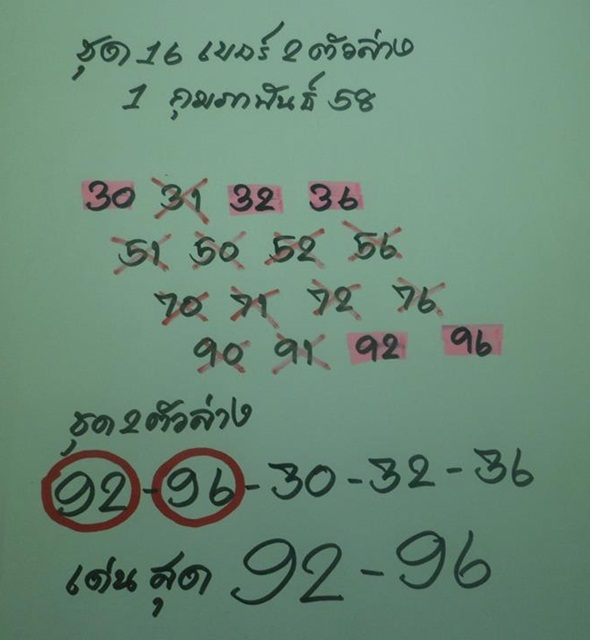 ชุด 16 เบอร์ 2 ตัวล่าง
1 กุมภาพันธ์ 58
30 31 32 36
51 50 52 56
70 71 72 76
90 91 92 96
ชุด 2 ตัวล่าง
92-96-30-32-36
เด่นสุด 92-96